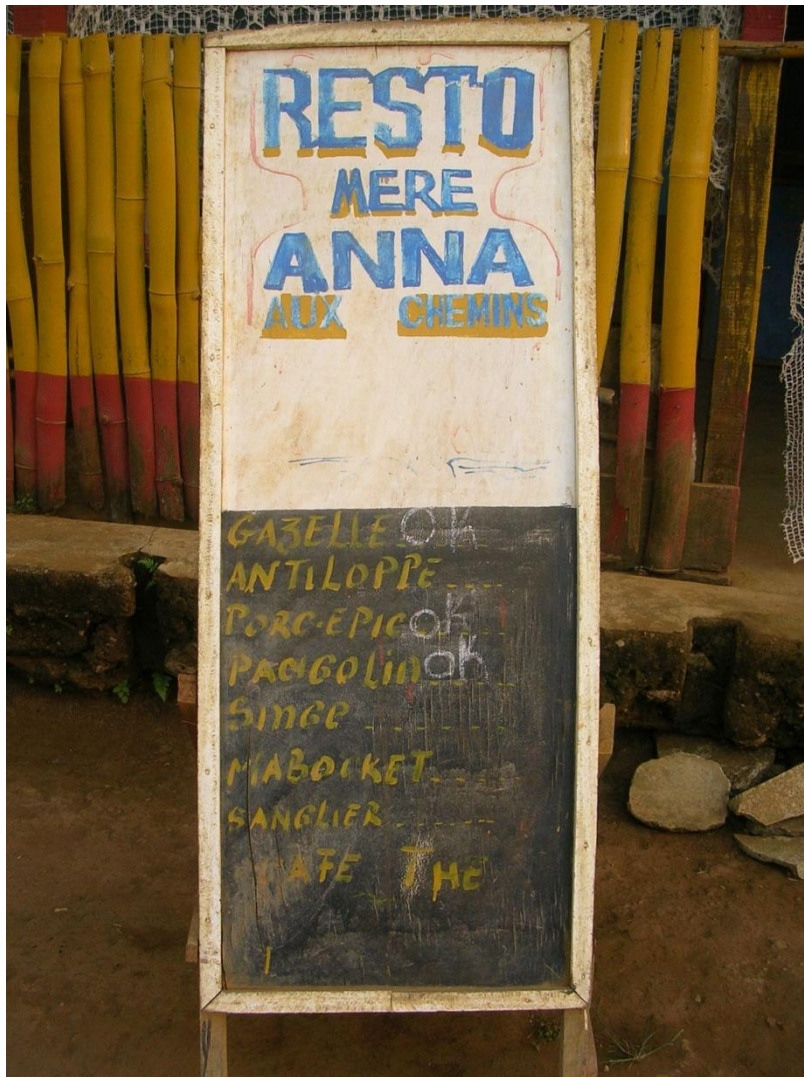 RESTO
MERE
ANNA
AUX CHEMINS
GAZELLE OK
ANTILOPPE ....
PORC-EPIC OK
PANGOLIN OK
SINGE .......
MABOCKET....
SANGLIER ......
CAFE THE